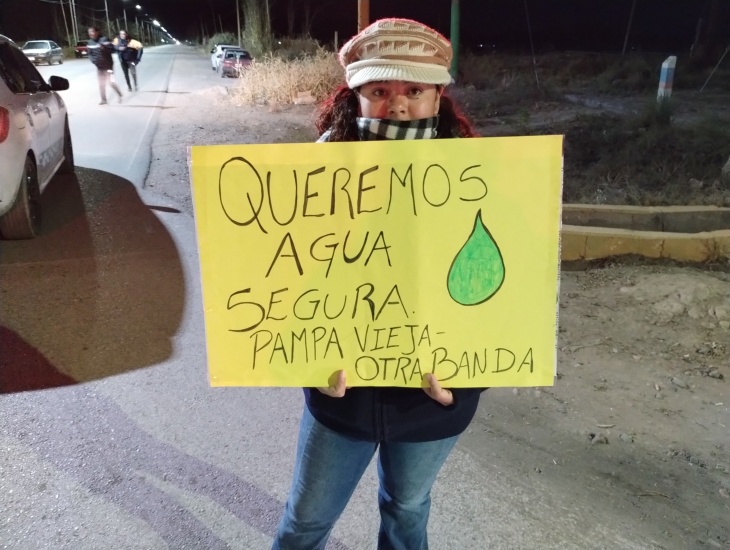 QUEREMOS
AGUA
SEGURA.
PAMPA VIEJA-
OTRA BANDA